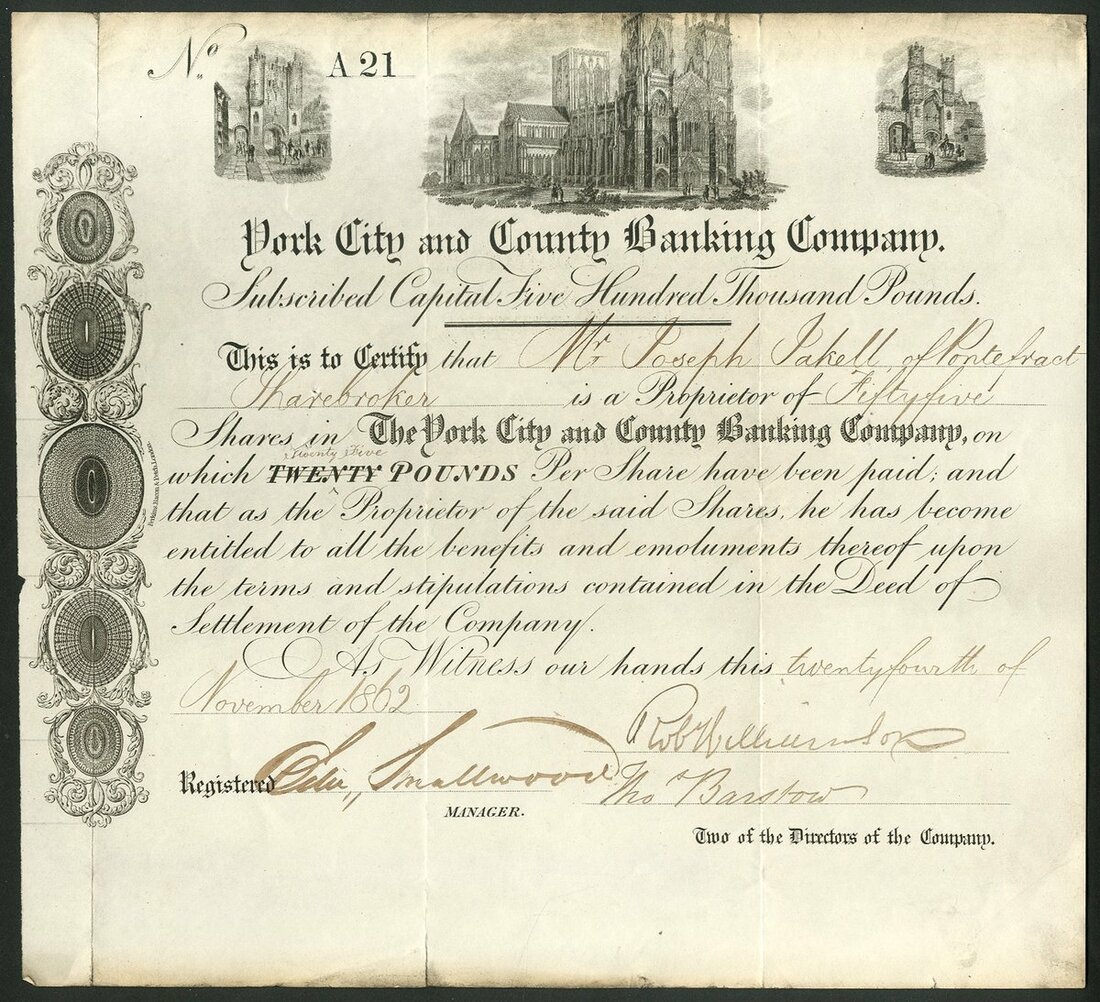 No. A 21
York City and County Banking Company.
Subscribed Capital Five Hundred Thousand Pounds.
This is to Certify that Mr Joseph Jakell, of Pontefract
Sharebroker is a Proprietor of Fiftyfive
Shares in The York City and County Banking Company, on
Twenty Five
which TWENTY POUNDS Per Share have been paid; and
that as the Proprietor of the said Shares, he has become
entitled to all the benefits and emoluments thereof upon
the terms and stipulations contained in the Deed of
Settlement of the Company.
As Witness our hands this twentyfourth of
November 1862
Robt Williamson
Registered Smallwood
Thos Barstow
MANAGER.
Two of the Directors of the Company.
Perkins, Bacon & Petch, London.